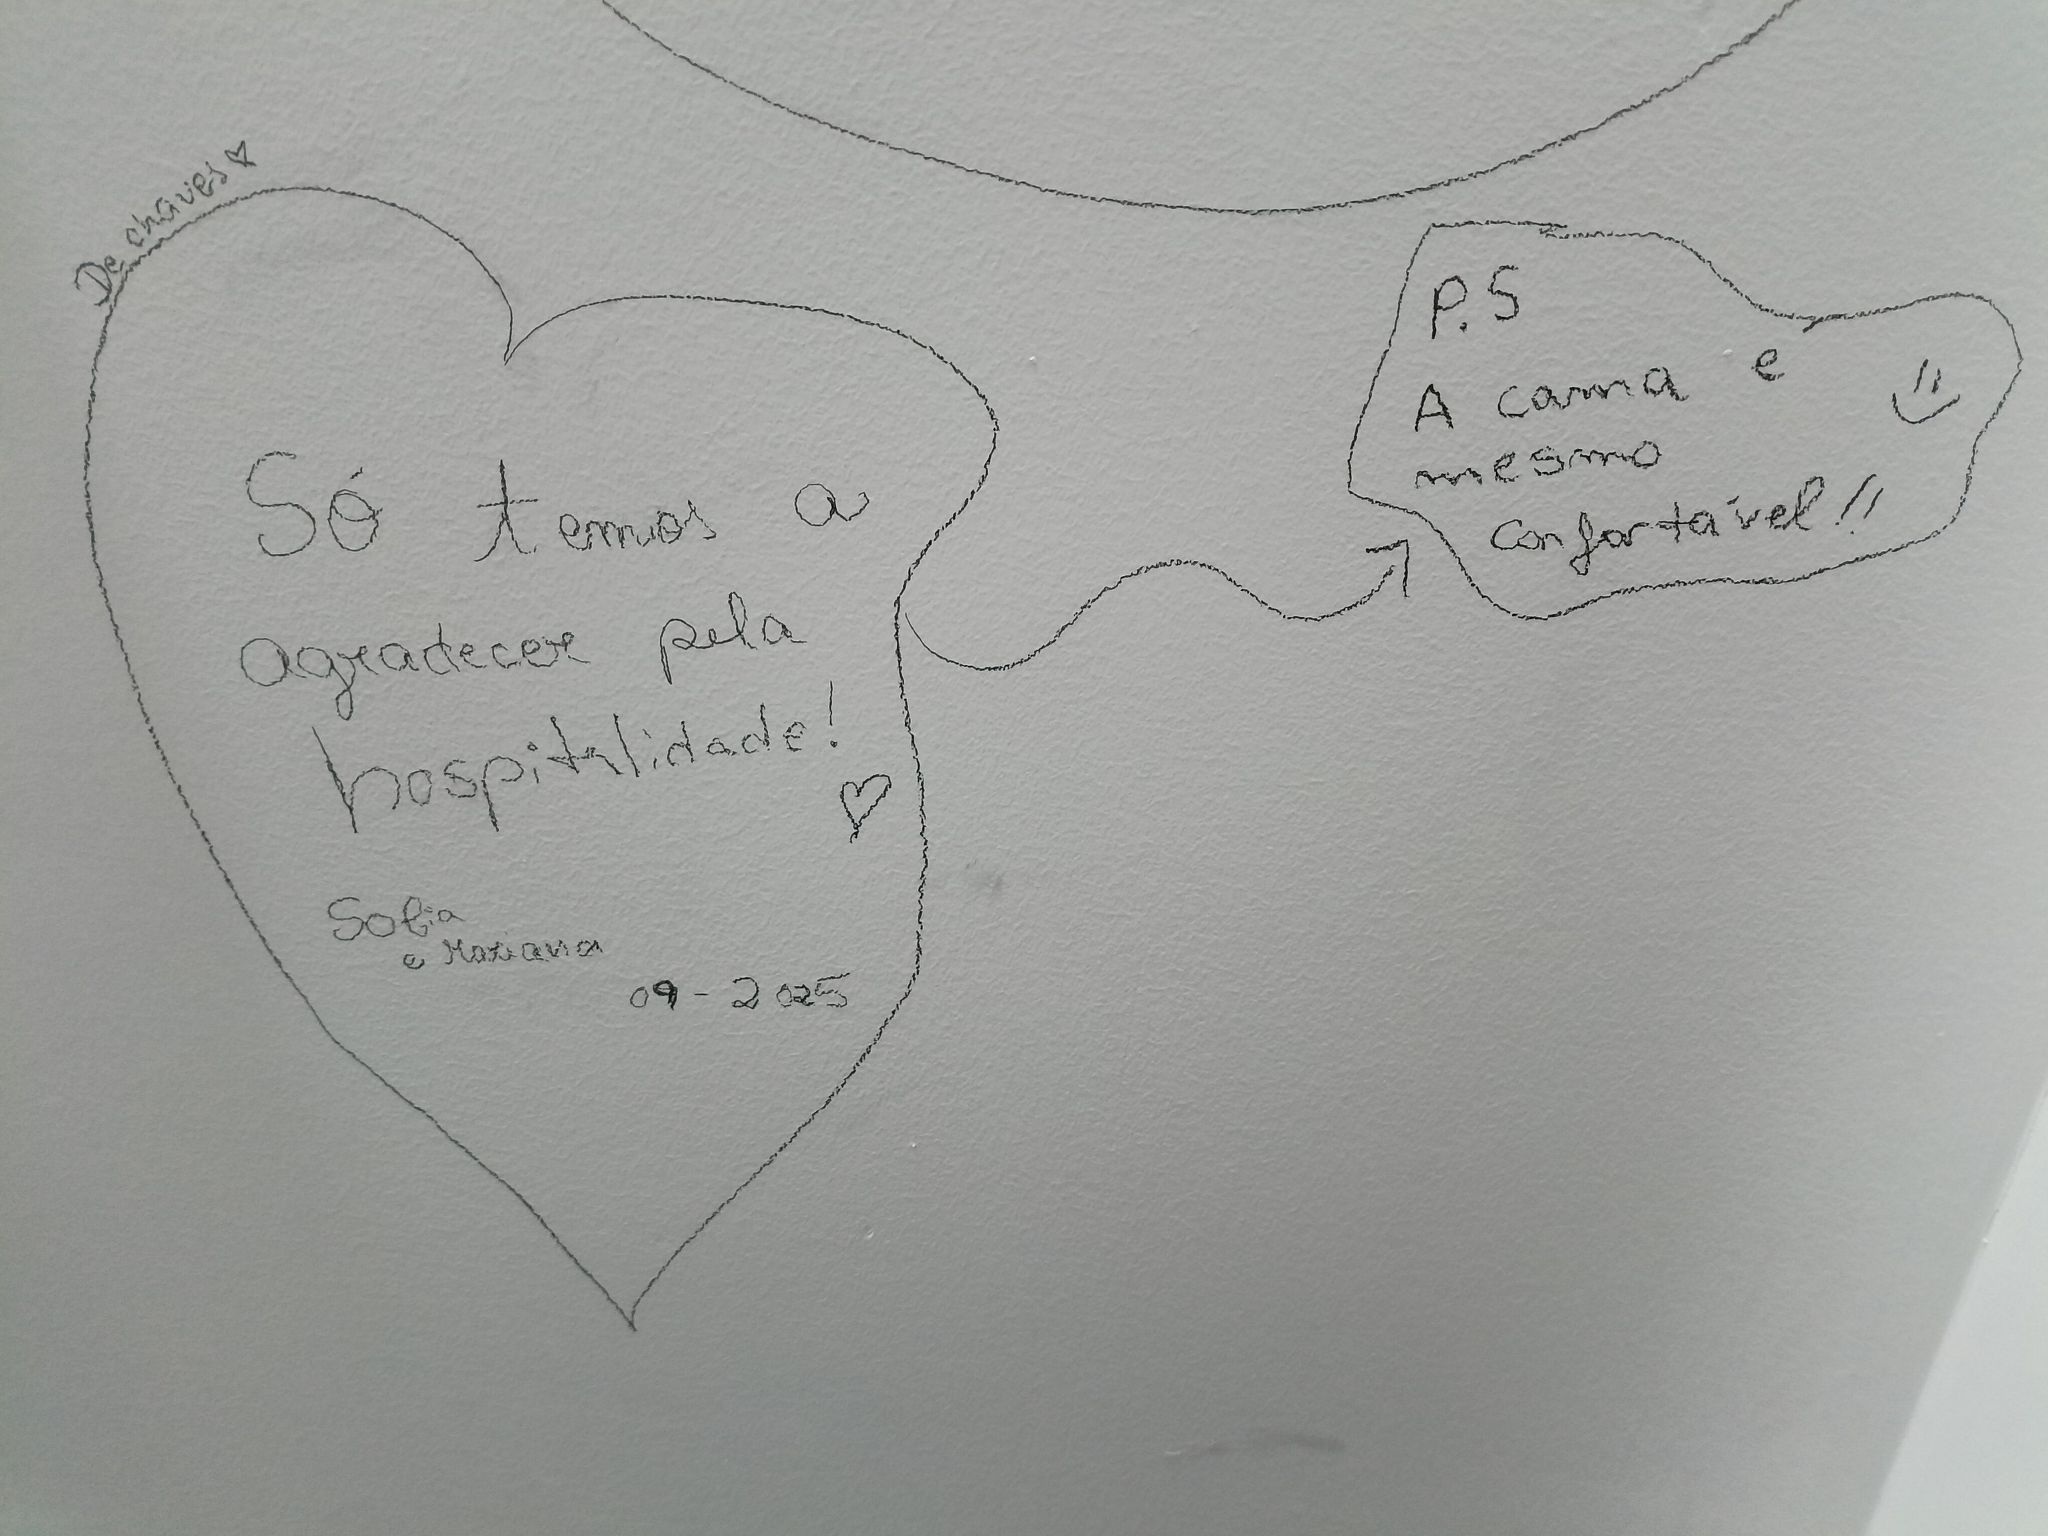 De chaves
Só temos a
agradecer pela
hospitalidade!
Sofia
e Mariana
09-2025
P.S
A cama e
mesmo
confortável!!